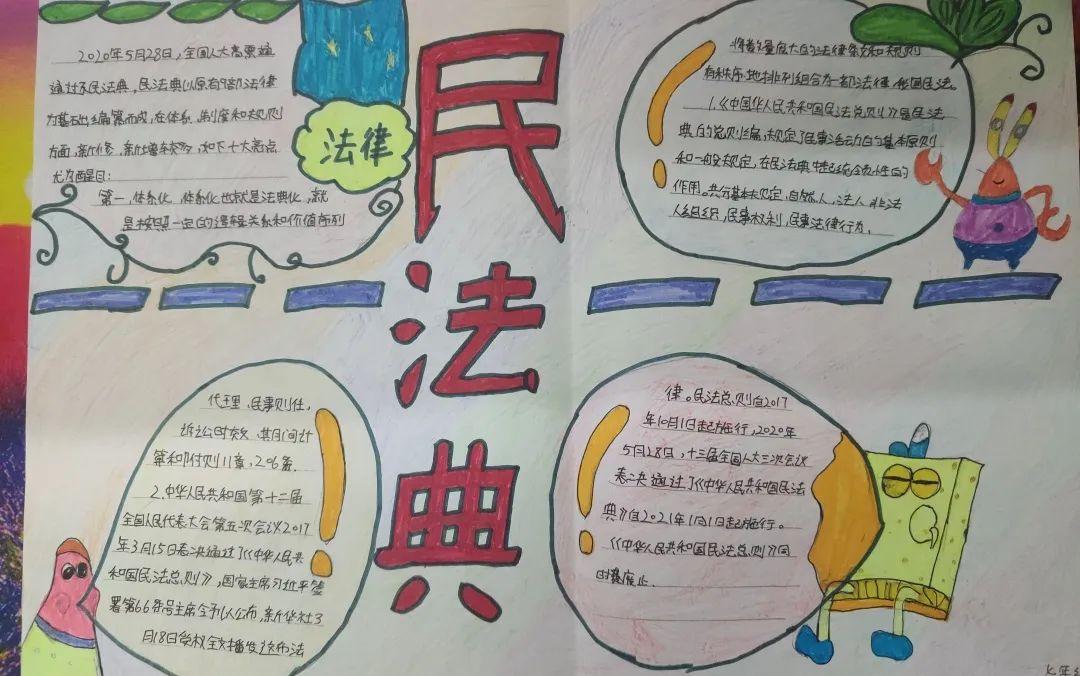 民法典
法律
2020年5月28日，全国人大高票通
通过了民法典，民法典以原有9部法律
为基础编纂而成，在体系、制度和规则
方面，新修、新增较多，如下十大亮点
尤为醒目：
第一，体系化 体系化也就是法典化，就
是按照一定的逻辑关系和价值序列
将数量庞大的法律条文和规则
有秩序地排列组合为一部法律，我国民法。
1.《中国华人民共和国民法总则》是民法
典的总则编，规定了民事活动的基本原则
和一般规定，在民法典中起统领性的
作用。共分基本规定，自然人，法人，非法
人组织，民事权利，民事法律行为、
代理、民事责任，
诉讼时效、期间计
算和附则11章，206条．
2.中华人民共和国第十二届
全国人民代表大会第五次会议2017
年3月15日表决通过了《中华人民共
和国民法总则》，国家主席习近平签
署第66号主席令予以公布，新华社3
月18日受权全文播发这部法
律。民法总则自2017
年10月1日起施行，2020年
5月28日，十三届全国人大三次会议
表决通过了《中华人民共和国民法
典》自2021年1月1日起施行。
《中华人民共和国民法总则》同
时废止．
七年